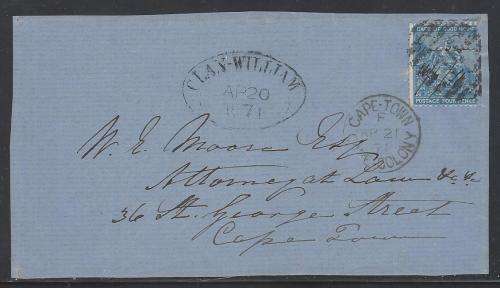 CAPE OF GOOD HOPE
POSTAGE FOUR PENCE
CLAN-WILLIAM
AP 20
1871
CAPE-TOWN
F
AP 21
COLONY
W. E. Moore Esq
Attorney at Law &c. &c.
36 St. George Street
Cape Town